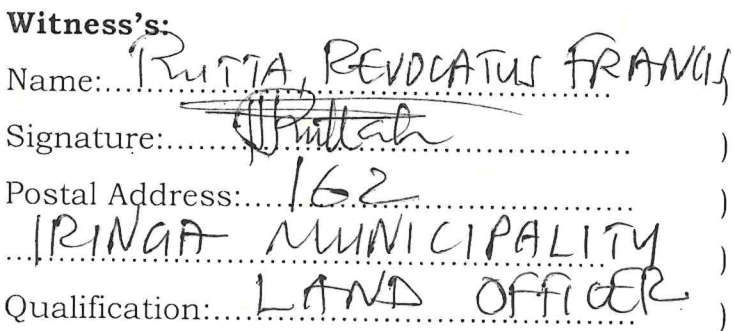 Witness's:
Name:....RUTTA, REVOCATUS FRANCIS )
Signature:....Ruttah.... )
Postal Address:....162.... )
....IRINGA MUNICIPALITY )
Qualification:....LAND OFFICER )